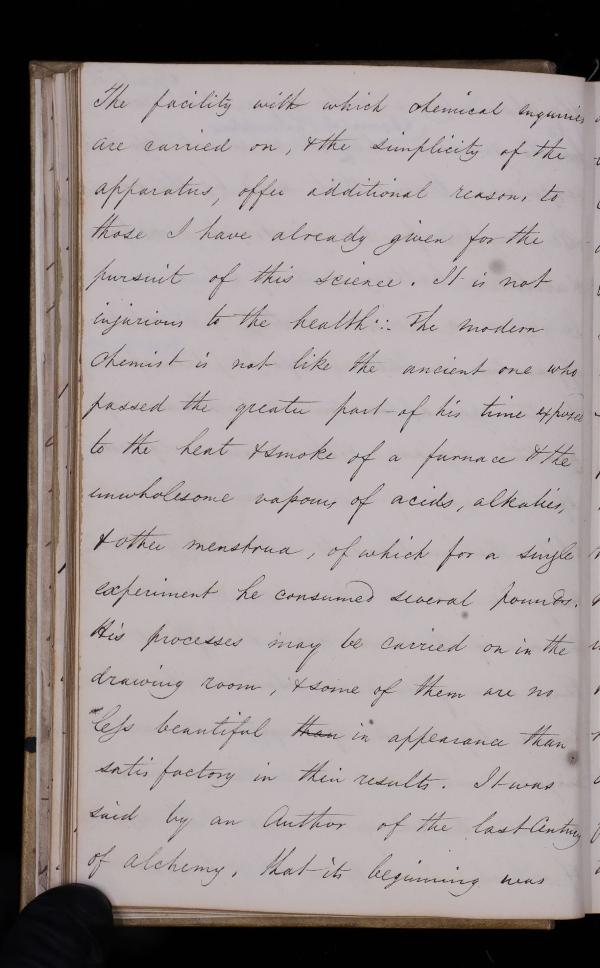 The facility with which chemical enquiries
are carried on, & the simplicity of the
apparatus, offer additional reasons to
those I have already given for the
pursuit of this science. It is not
injurious to the health:: The modern
Chemist is not like the ancient one who
passed the greater part of his time exposed
to the heat & smoke of a furnace & the
unwholesome vapours of acids, alkalies,
& other menstrua, of which for a single
experiment he consumed several pounds.
His processes may be carried on in the
drawing room, & some of them are no
less beautiful than in appearance than
satisfactory in their results. It was
said by an Author of the last Century
of alchemy, that its beginning was